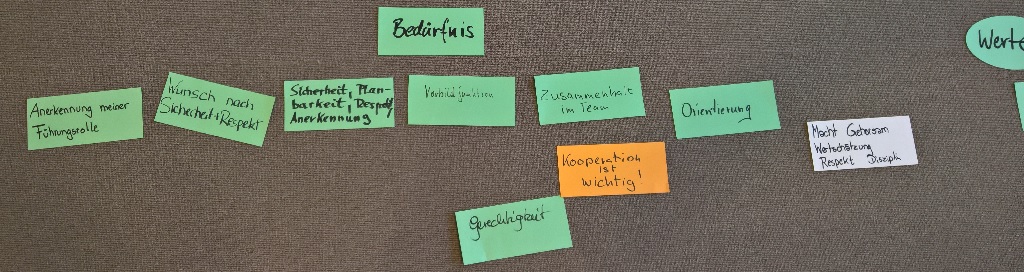 Bedürfnis
Werte
Anerkennung meiner
Führungsrolle
Wunsch nach
Sicherheit + Respekt
Sicherheit, Plan-
barkeit, Respekt,
Anerkennung
Vorbildfunktion
Zusammenhalt
im Team
Orientierung
Macht Gehorsam
Wertschätzung
Respekt Disziplin
Kooperation
ist
wichtig!
Gerechtigkeit